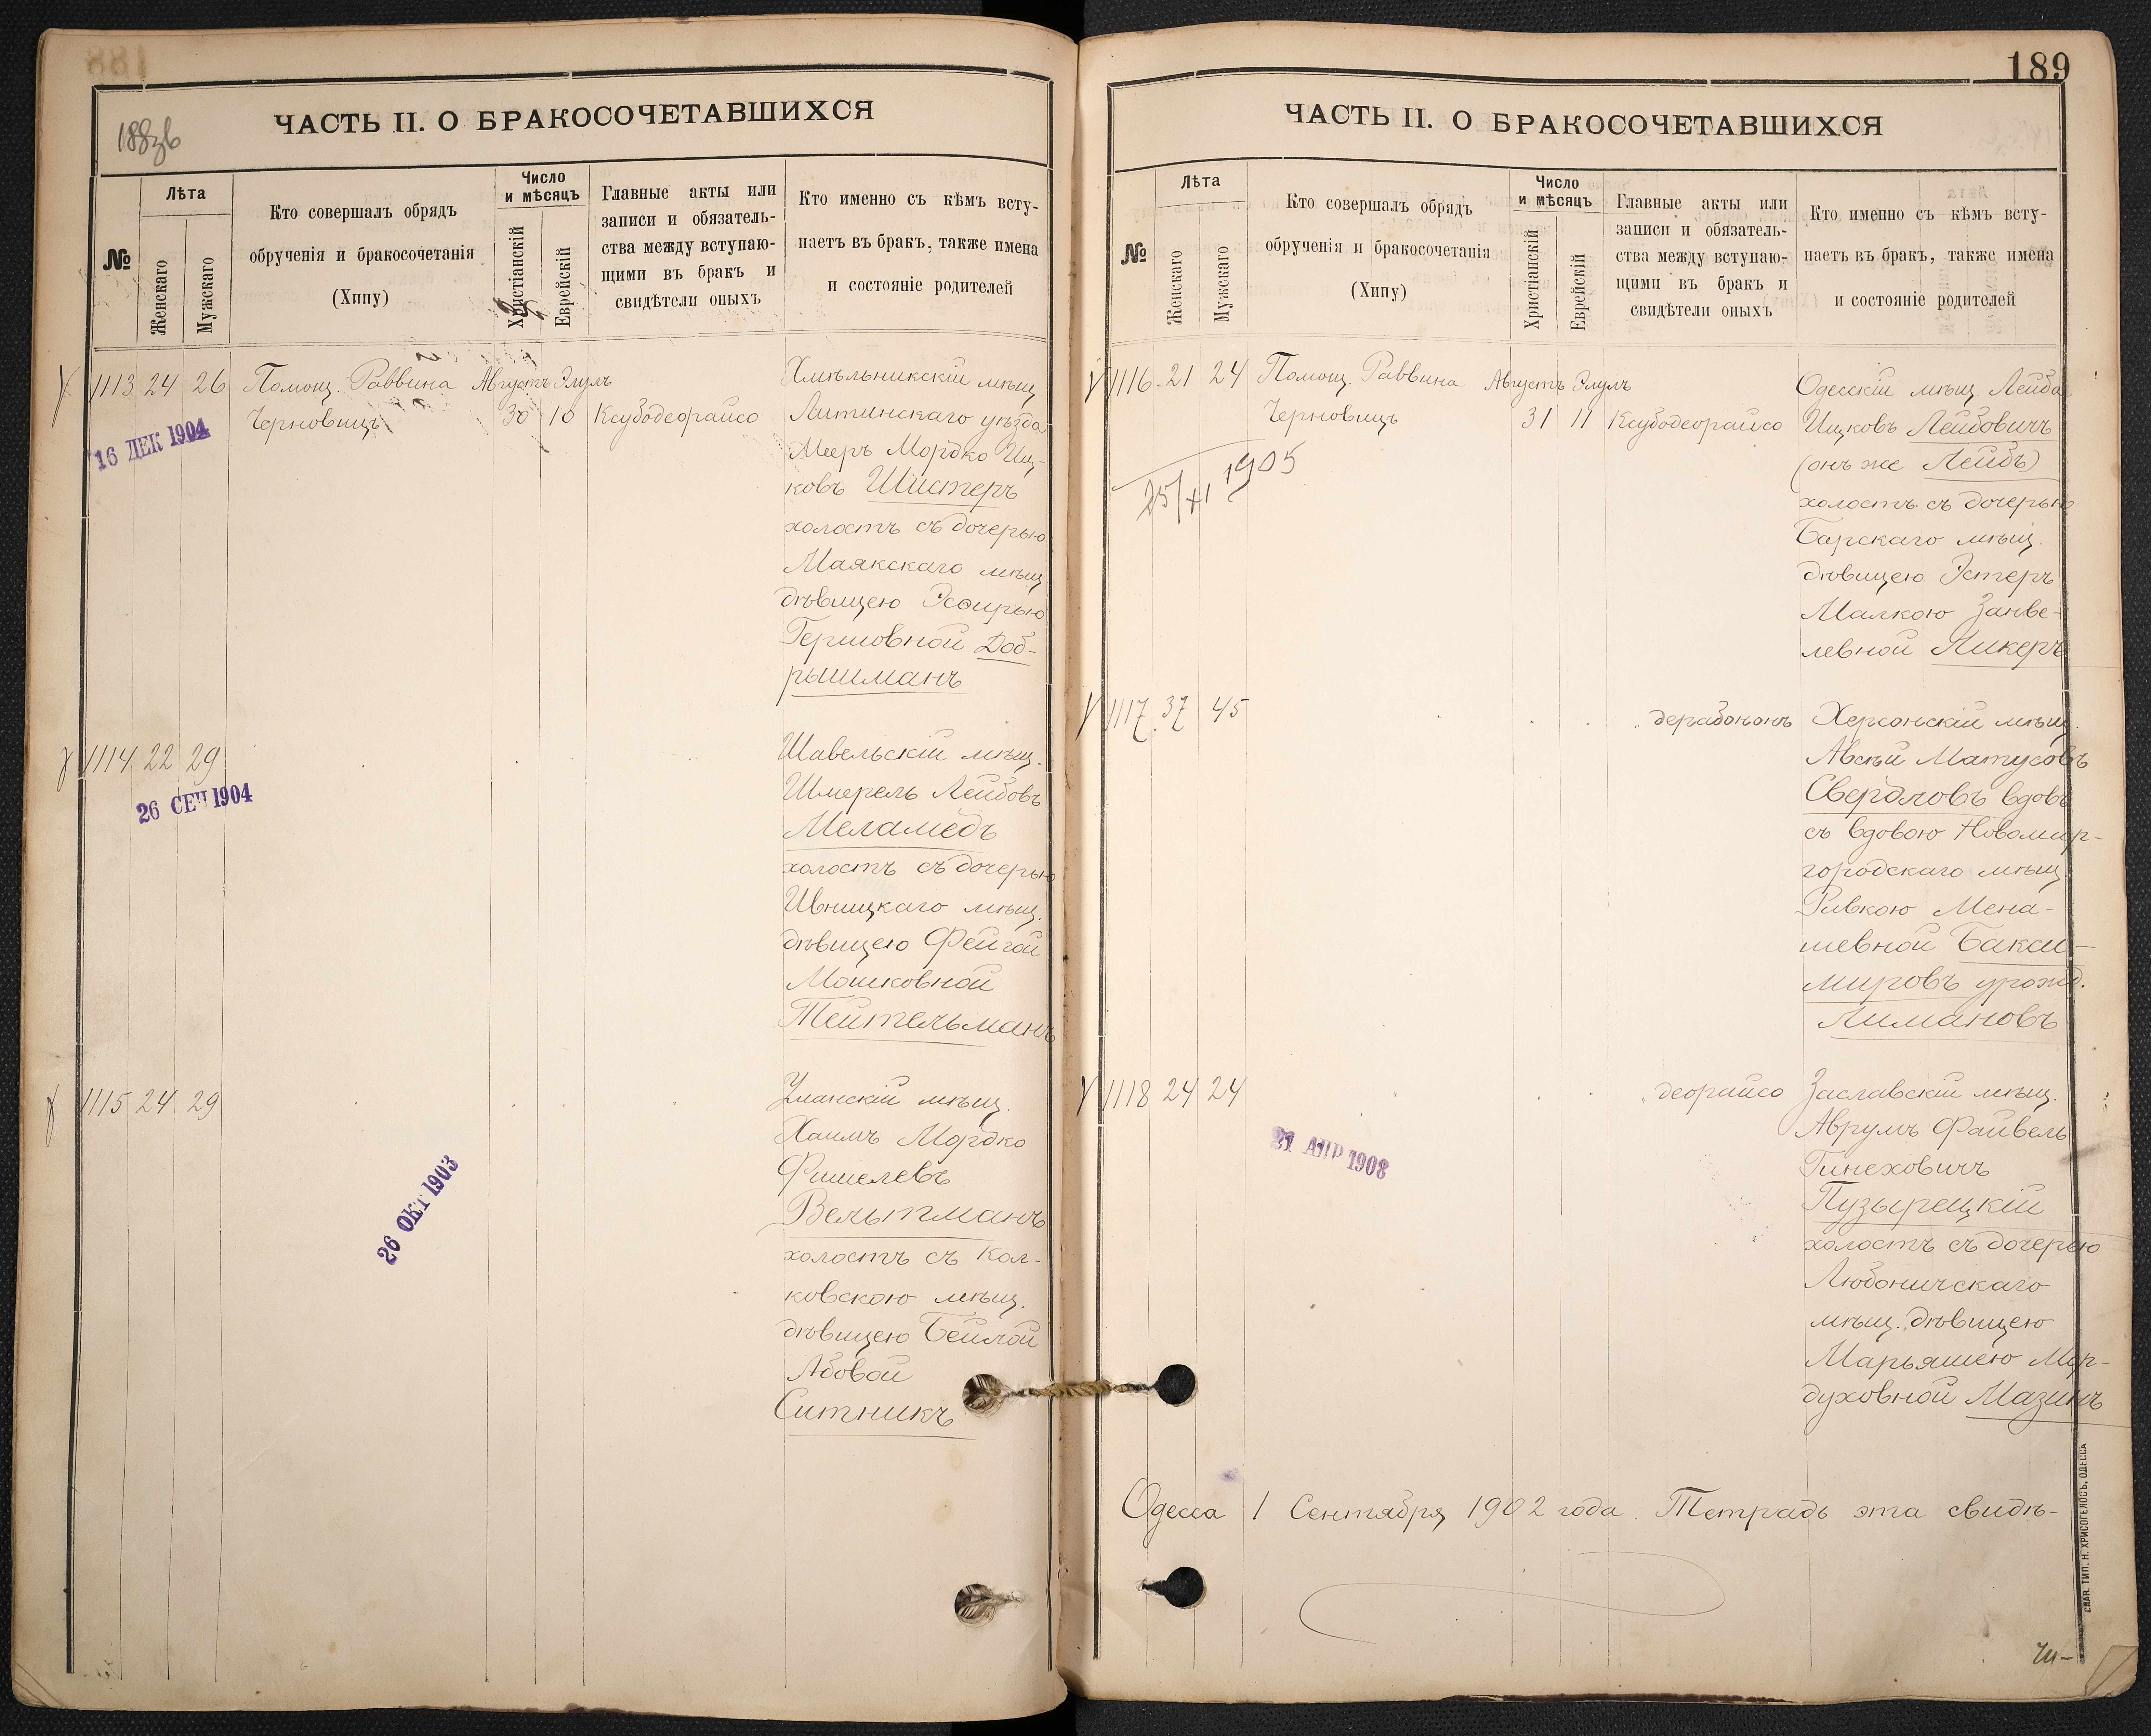 188об
ЧАСТЬ II. О БРАКОСОЧЕТАВШИХСЯ
№
Лѣта
Женскаго
Мужскаго
Кто совершалъ обрядъ
обрученія и бракосочетанія
(Хипу)
Число
и мѣсяцъ
Христіанскій
Еврейскій
Главные акты или
записи и обязатель-
ства между вступаю-
щими въ бракъ и
свидѣтели оныхъ
Кто именно съ кѣмъ всту-
паетъ въ бракъ, также имена
и состояніе родителей
1113 24 26 Помощ. Раввина Августъ Элулъ Хмѣльникскій мѣщ.
16 ДЕК 1904 Черновицъ 30 10 Ксубодеорайсо Литинскаго уѣзда
Мееръ Мордко Иц-
ковъ Шистеръ
холостъ съ дочерью
Маякскаго мѣщ.
дѣвицею Эсѳирью
Гершовной Доб-
рышманъ
1114 22 29 Шавельскій мѣщ.
26 СЕН 1904 Шмерель Лейбовъ
Меламедъ
холостъ съ дочерью
Ивницкаго мѣщ.
дѣвицею Фейгой
Мошковной
Тейтельманъ
1115 24 29 Уманскій мѣщ.
Хаимъ Мордко
26 ОКТ 1903 Фишелевъ
Вельтманъ
холостъ съ Кол-
ковскою мѣщ.
дѣвицею Бейлой
Абовой
Ситникъ
189
ЧАСТЬ II. О БРАКОСОЧЕТАВШИХСЯ
№
Лѣта
Женскаго
Мужскаго
Кто совершалъ обрядъ
обрученія и бракосочетанія
(Хипу)
Число
и мѣсяцъ
Христіанскій
Еврейскій
Главные акты или
записи и обязатель-
ства между вступаю-
щими въ бракъ и
свидѣтели оныхъ
Кто именно съ кѣмъ всту-
паетъ въ бракъ, также имена
и состояніе родителей
1116 21 24 Помощ. Раввина Августъ Элулъ Одесскій мѣщ. Лейба
Черновицъ 31 11 Ксубодеорайсо Ицковъ Лейбовичъ
25/XI 1905 (онъ же Лейбъ)
холостъ съ дочерью
Барскаго мѣщ.
дѣвицею Эстеръ
Малкою Занве-
левной Ликеръ
1117 37 45 дерабононъ Херсонскій мѣщ.
Авсѣй Матусовъ
Свердловъ вдовъ
съ вдовою Новомир-
городскаго мѣщ.
Ривкою Мена-
шевной Бакси-
мировъ урожд.
Лимановъ
1118 24 24 деорайсо Заславскій мѣщ.
31 АПР 1908 Аврумъ Файвель
Пинеховичъ
Пузырецкій
холостъ съ дочерью
Любоничскаго
мѣщ. дѣвицею
Марьяшею Мор-
духовной Мазинъ
Одесса 1 Сентября 1902 года. Тетрадь эта свидѣ-
СЛАВ. ТИП. Н. ХРИСОГЕЛОСЪ, ОДЕССА